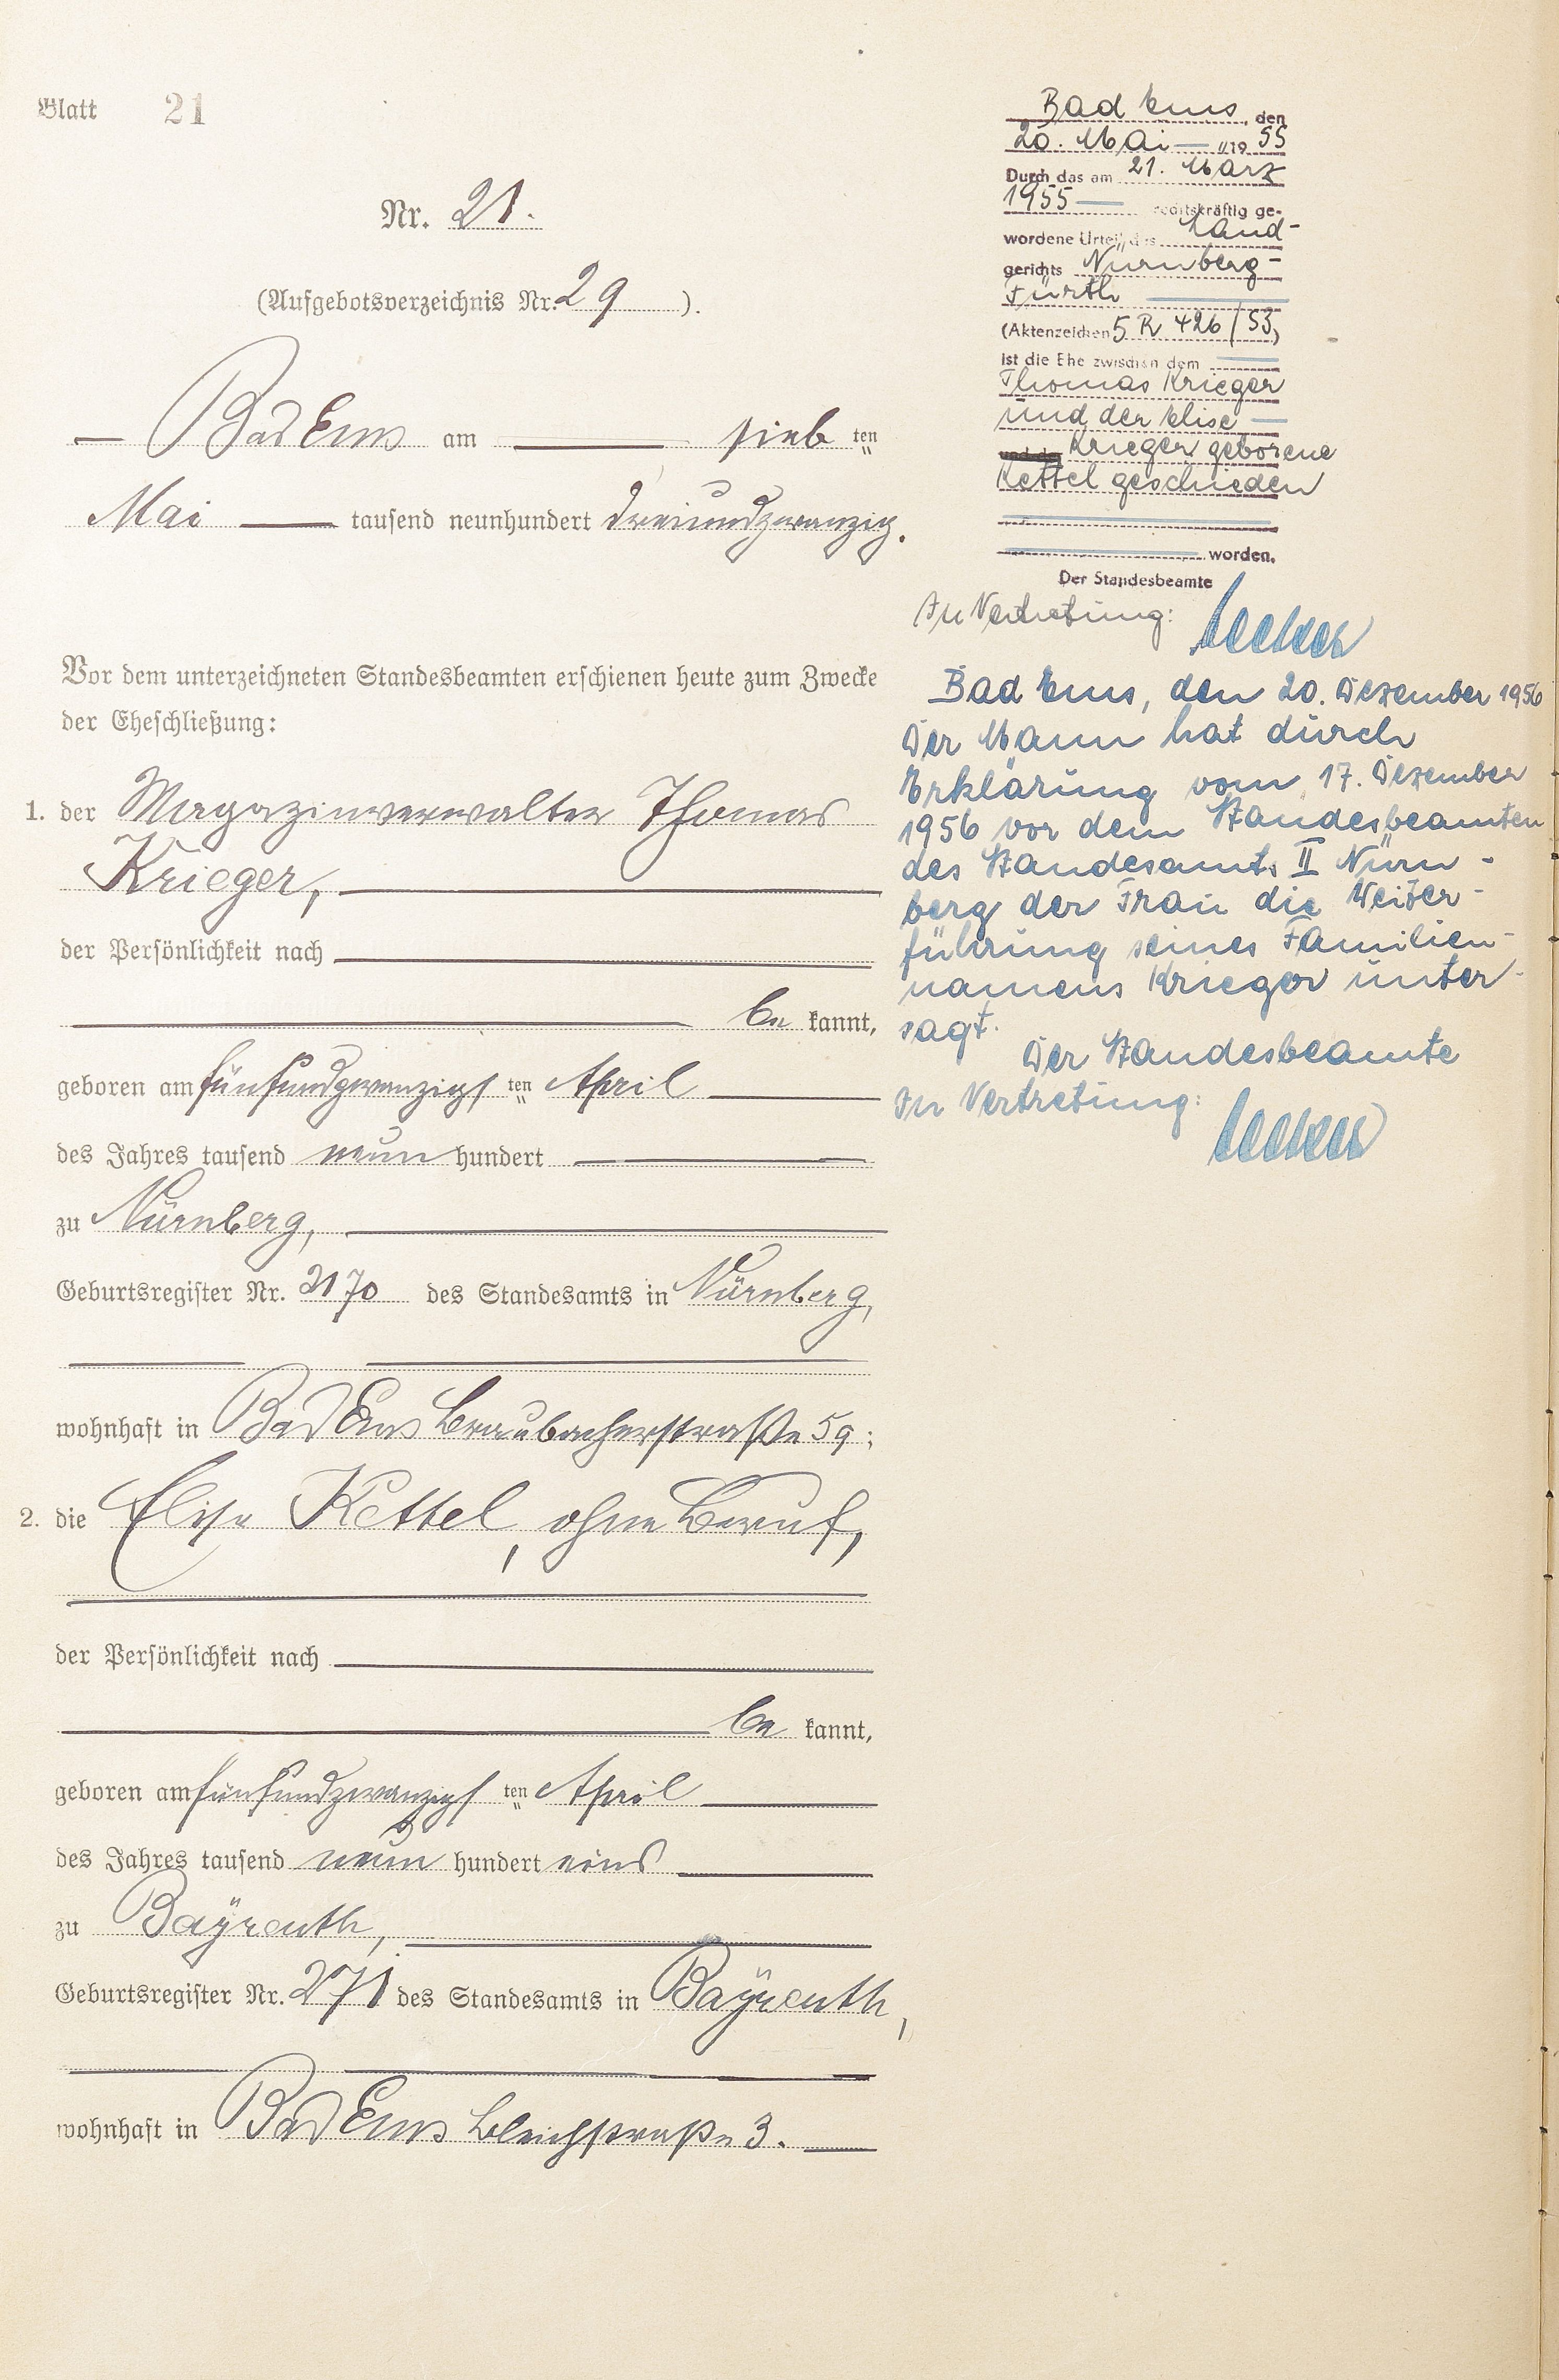 Blatt 21
Nr. 21.
(Aufgebotsverzeichnis Nr. 29).
Bad Ems am sieb ten
Mai tausend neunhundert dreiundzwanzig.
Vor dem unterzeichneten Standesbeamten erschienen heute zum Zwecke
der Eheschließung:
1. der Magazinverwalter Thomas
Krieger,
der Persönlichkeit nach
be kannt,
geboren am fünfundzwanzigs ten April
des Jahres tausend neun hundert
zu Nürnberg,
Geburtsregister Nr. 2170 des Standesamts in Nürnberg,
wohnhaft in Bad Ems Braubacherstraße 59;
2. die Elise Kettel, ohne Beruf,
der Persönlichkeit nach
be kannt,
geboren am fünfundzwanzigs ten April
des Jahres tausend neun hundert eins
zu Bayreuth,
Geburtsregister Nr. 271 des Standesamts in Bayreuth,
wohnhaft in Bad Ems Bleichstraße 3.
Bad Ems, den
20. Mai 19 55
Durch das am 21. März
1955 rechtskräftig ge-
wordene Urteil des Land-
gerichts Nürnberg-
Fürth
(Aktenzeichen 5 R 426/53)
ist die Ehe zwischen dem
Thomas Krieger
und der Elise
und der Krieger geborene
Kettel geschieden
worden.
Der Standesbeamte
In Vertretung:
Bad Ems, den 20. Dezember 1956
Der Mann hat durch
Erklärung vom 17. Dezember
1956 vor dem Standesbeamten
des Standesamts II Nürn-
berg der Frau die Weiter-
führung seines Familien-
namens Krieger unter-
sagt.
Der Standesbeamte
In Vertretung: